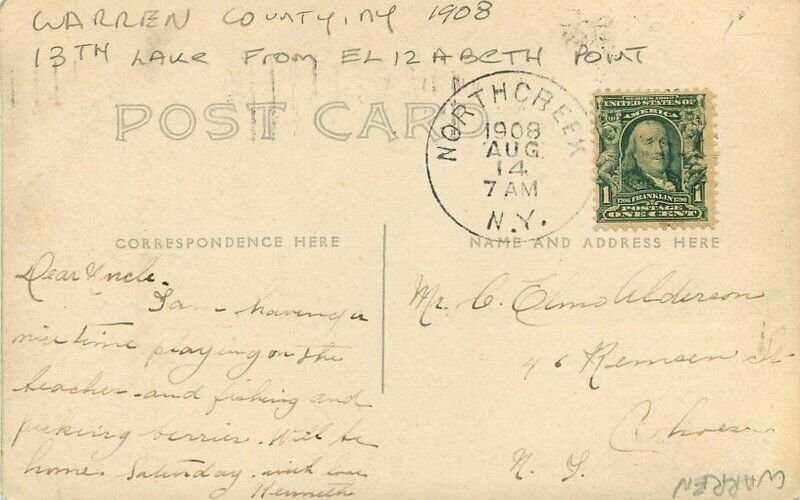 WARREN COUNTY, NY 1908
13TH LAKE FROM ELIZABETH POINT
POST CARD
NORTH CREEK
1908
AUG
14
7 AM
N.Y.
SERIES 1902
UNITED STATES OF
AMERICA
1 1
1706 FRANKLIN 1790
POSTAGE
ONE CENT
CORRESPONDENCE HERE
NAME AND ADDRESS HERE
Dear Uncle.
I am having a
nice time playing on the
beaches and fishing and
picking berries. Will be
home Saturday. with love
Kenneth
Mr. C. Elmo Alderson
46 Remsen St
Cohoes
N. Y.
WARREN